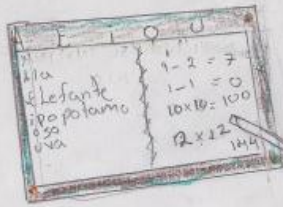 A E I O U
ala
Elefante
ipopotamo
oso
uva
9-2=7
1-1=0
10x10=100
12x12
144